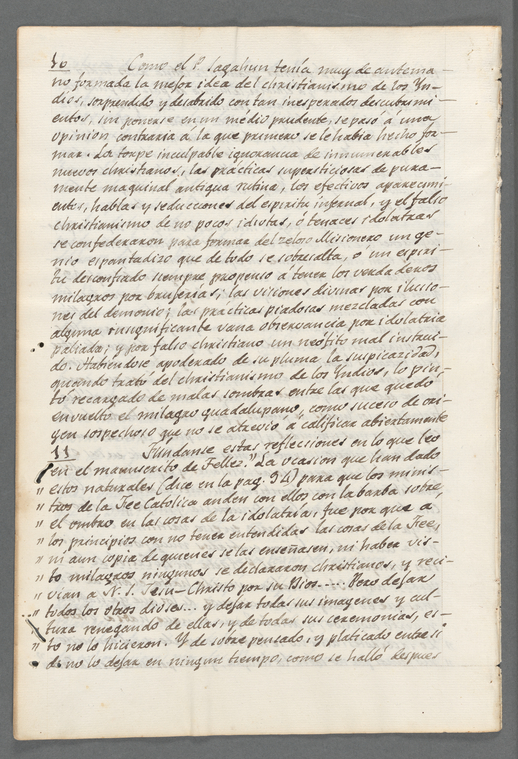 10 Como el P. Sagahun tenía muy de antema-
no formada la mejor idea del christianismo de los Yn-
dios, sorprendido y desabrido con tan inesperados descubrimi-
entos, sin ponerse en un medio prudente, se pasó á una
opinion contraria á la que primero se le habia hecho for-
mar. La torpe inculpable ignorancia de innumerables
nuevos christianos, las prácticas supersticiosas de pura-
mente maquinal antigua rutina, los efectivos aparecimi-
entos, hablas y seducciones del espiritu infernal, y el falso
christianismo de no pocos idiotas, ó tenaces idolatras
se confederaron para formar del zeloso Misionero un ge-
nio espantadizo que de todo se sobresalta, ó un espiri-
tu desconfiado siempre propenso á tener los verdaderos
milagros por bruferías; las visiones divinas por ilusio-
nes del demonio; las practicas piadosas mezcladas con
alguna insignificante vana observancia por idolatria
paliada; y por falso christiano un neófito mal instrui-
do. Habiendose apoderado de su pluma la suspicazidad,
quando trató del christianismo de los Yndios, lo pin-
tó recargado de malas sombras entre las que quedó
envuelto el milagro guadalupano, como suceso de ori-
gen sospechoso que no se atrevió á calificar abiertamente
11 Fundanse estas reflecciones en lo que leo
en el manuscrito de Tellez. "La ocasion que han dado
" estos naturales (dice en la pag. 34) para que los minis-
" tros de la Fee Catolica anden con ellos con la barba sobre
" el ombro en las cosas de la idolatria, fue por que á
" los principios con no tener entendidas las cosas de la Fee,
" ni aun copia de quienes se las enseñasen, ni haber vis-
" to milagros ningunos se declararon christianos, y reci-
" vian á N. S. Jesu-Christo por su Dios..... Pero dejar
" todos los otros dioses... y dejar todas sus imagenes y cul-
" tura renegando de ellas, y de todas sus ceremonias, es-
" to no lo hicieron. Y de sobre pensado, y platicado entre si
" de no lo dejar en ningun tiempo, como se halló despues